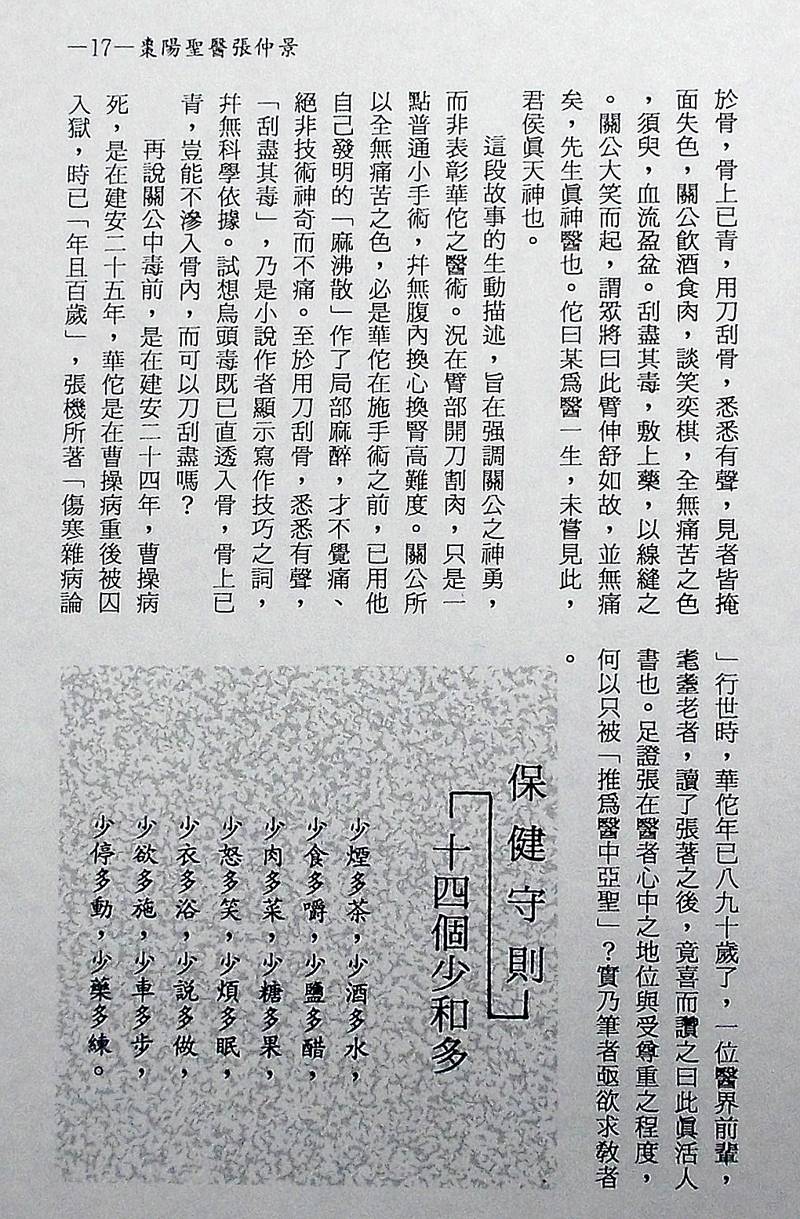 —17—棗陽聖醫張仲景
於骨，骨上已青，用刀刮骨，悉悉有聲，見者皆掩
面失色，關公飲酒食肉，談笑奕棋，全無痛苦之色
，須臾，血流盈盆。刮盡其毒，敷上藥，以線縫之
。關公大笑而起，謂眾將曰此臂伸舒如故，並無痛
矣，先生眞神醫也。佗曰某爲醫一生，未嘗見此，
君侯眞天神也。
這段故事的生動描述，旨在强調關公之神勇，
而非表彰華佗之醫術。況在臂部開刀割肉，只是一
點普通小手術，幷無腹內換心換腎高難度。關公所
以全無痛苦之色，必是華佗在施手術之前，已用他
自己發明的「麻沸散」作了局部麻醉，才不覺痛、
絕非技術神奇而不痛。至於用刀刮骨，悉悉有聲，
「刮盡其毒」，乃是小說作者顯示寫作技巧之詞，
幷無科學依據。試想烏頭毒既已直透入骨，骨上已
青，豈能不滲入骨內，而可以刀刮盡嗎？
再說關公中毒前，是在建安二十四年，曹操病
死，是在建安二十五年，華佗是在曹操病重後被囚
入獄，時已「年且百歲」，張機所著「傷寒雜病論
」行世時，華佗年已八九十歲了，一位醫界前輩，
耄耋老者，讀了張著之後，竟喜而讚之曰此眞活人
書也。足證張在醫者心中之地位與受尊重之程度，
何以只被「推爲醫中亞聖」？實乃筆者亟欲求敎者
。
保健守則
十四個少和多
少煙多茶，少酒多水，
少食多嚼，少鹽多醋，
少肉多菜，少糖多果，
少怒多笑，少煩多眠，
少衣多浴，少說多做，
少欲多施，少車多步，
少停多動，少藥多練。